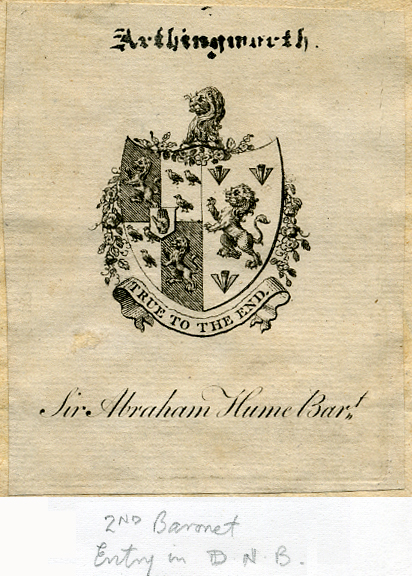 Arthingworth.
TRUE TO THE END.
Sir Abraham Hume Bar.t
2ND Baronet
Entry in D N B.